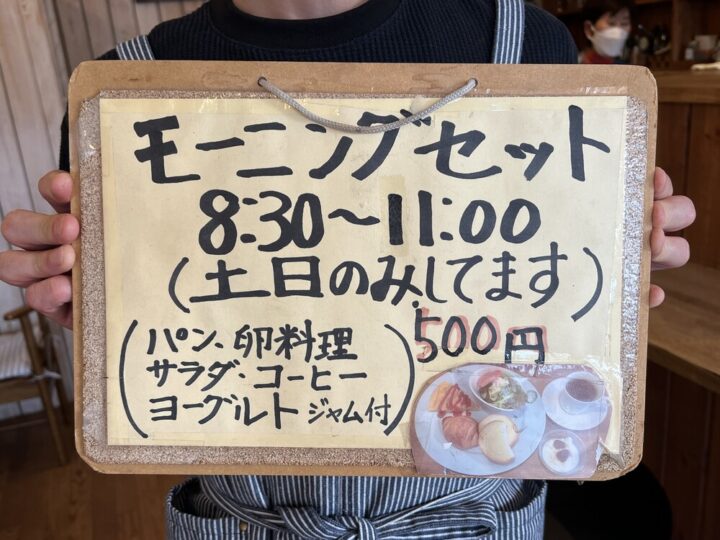 モーニングセット
8:30～11:00
(土日のみしてます)
(パン、卵料理
サラダ・コーヒー
ヨーグルト ジャム付)
500円